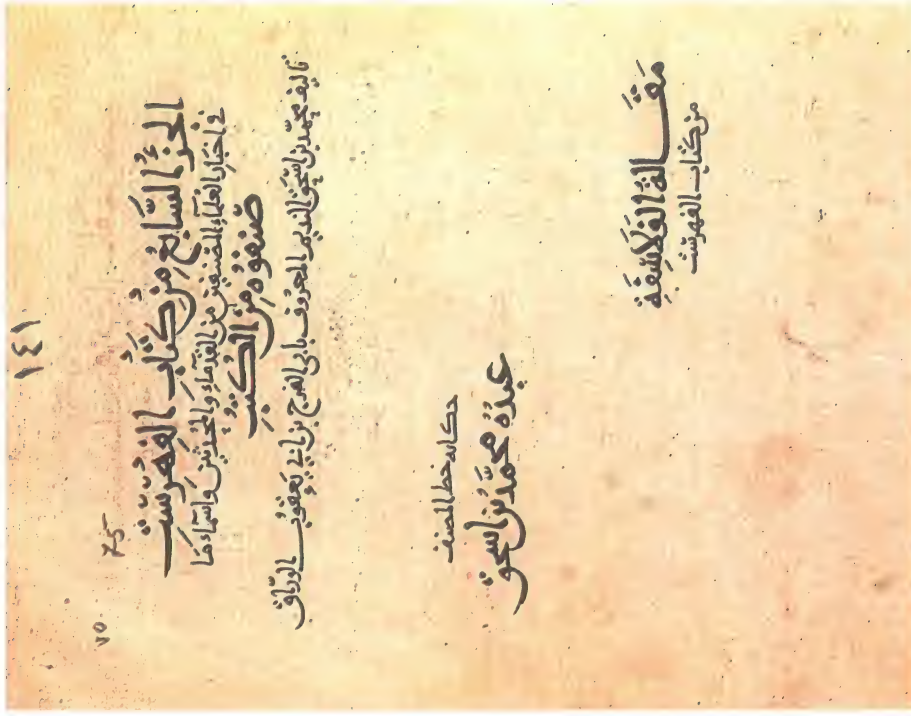 ١٤١
75
٧٥
الجزؤ السَّابعُ مِن كتَابِ الفهْرِسْت
في أخبَارِ العُلمَاءِ المُصَنِّفينَ مِن القُدَمَاءِ وَالمُحْدَثينَ وَأسْمَاءِ مَا
صَنفُوْهُ مِنَ الكُتُبِ
تاليف محمَّد بن اسْحٰق النديم المعرُوف بابي الفرج بن ابي يَعقوب الورّاق
حكاية خط المصنف
عبدُهُ محمَّدُ بن اسحٰق
مَقَالةُ الفَلاسِفَةِ
من كتاب الفهرست